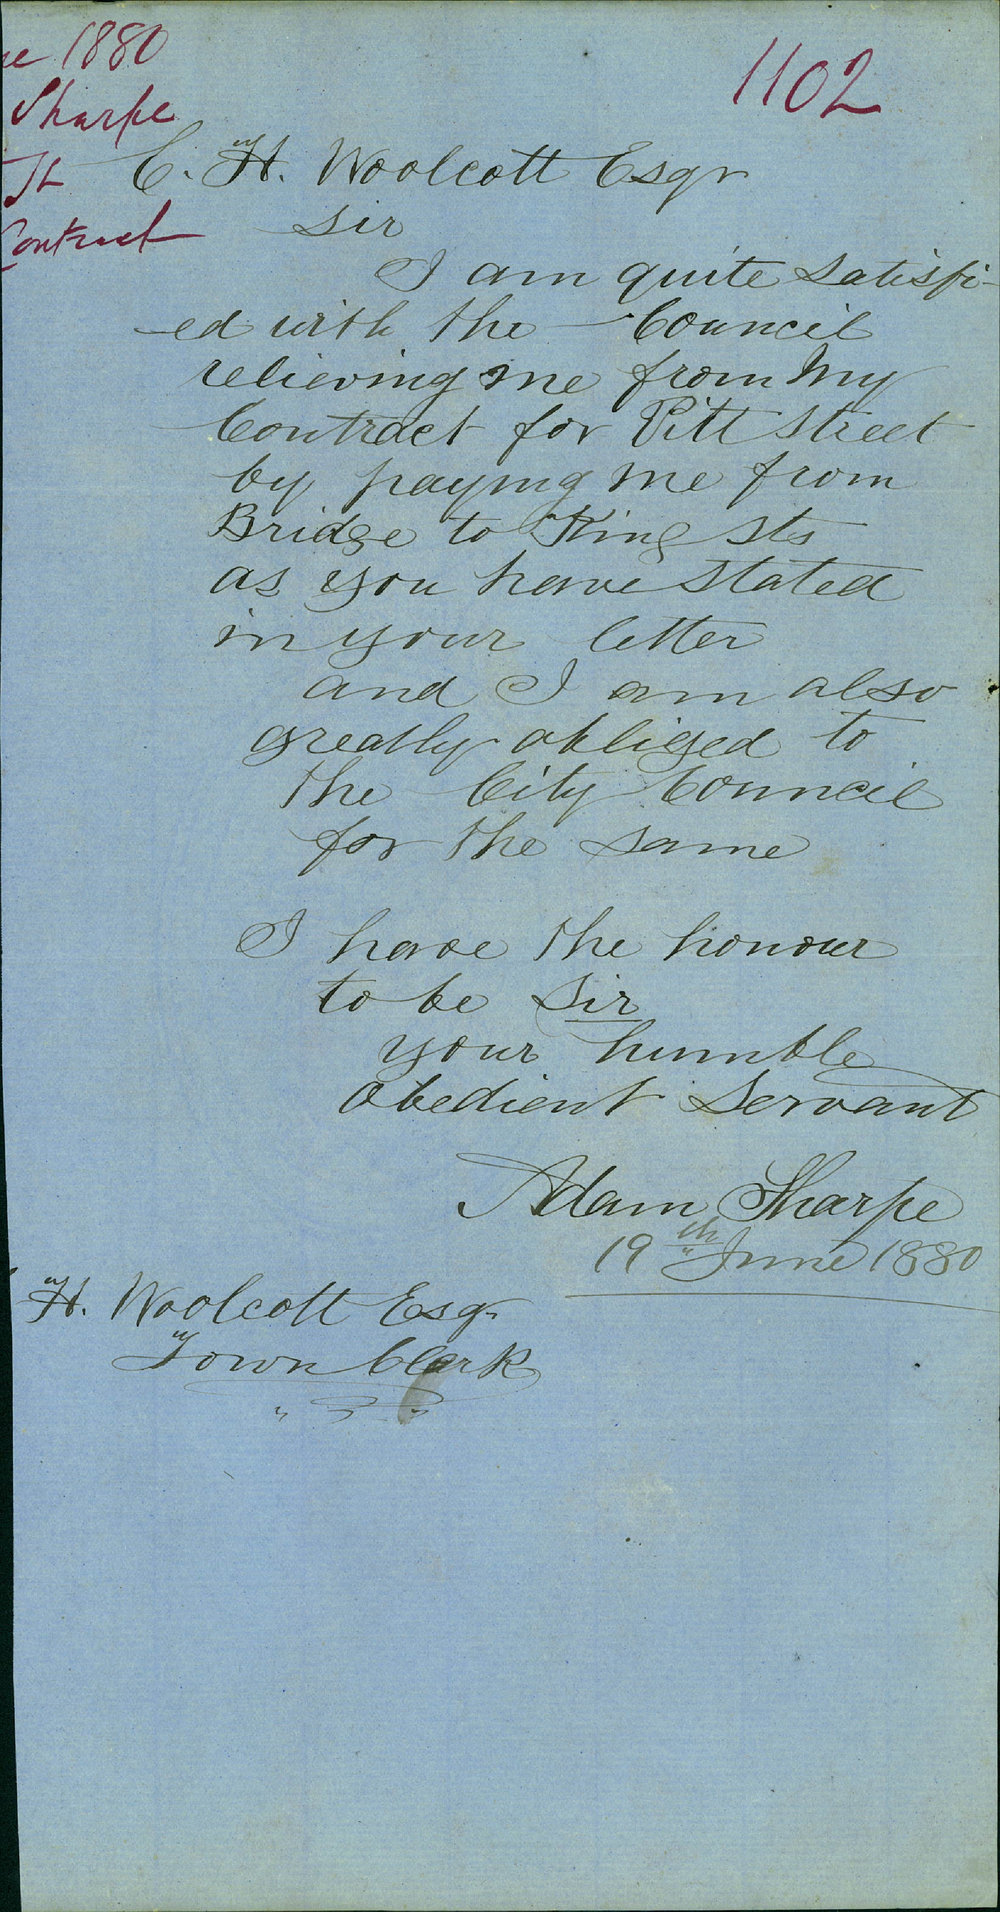 1102
ne 1880
Sharpe
St
Contract
C. H. Woolcott Esqr
Sir
I am quite satisfi-
-ed with the Council
relieving me from My
Contract for Pitt Street
by paying me from
Bridge to King Sts
as you have stated
in your letter
and I am also
greatly obliged to
the City Council
for the same
I have the honour
to be Sir
your humble
obedient Servant
Adam Sharpe
19th June 1880
H. Woolcott Esqr
Town Clerk